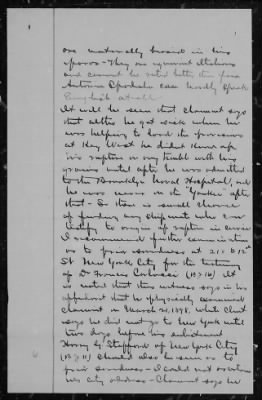 one materially biased in his
favor - They are ignorant Italians
and cannot be rated better than fair
Antonio can hardly speak
English at all.
It will be seen that claimant says
that altho he got weak when he
was helping to load the provisions
at Key West he didn't know of
his rupture or any trouble with his
groins until after he was admitted
to the Brooklyn Naval Hospital, and
he was never on the "Yankee" after
that - So there is small chance
of finding any shipmate who can
testify to origin of rupture in service
I recommend further examination
as to prior soundness at 211 E 12"
St New York City for the testimony
of Dr Francis (B p 16) It
is noted that this witness says in his
affidavit that he physically examined
claimant on March 20, 1898, while Clmt
says he did not go to New York until
two days before his enlistment
Harry G Stafford of New York City
(B p 11) should also be seen as to
prior soundness - I could not
his City address - Claimant says he